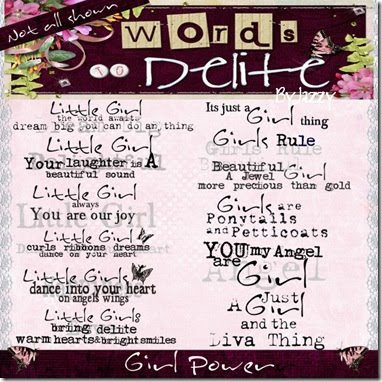 Not all shown
Words
to
Delite
By Lizzy
Little Girl
the world awaits
dream big you can do an thing
Little Girl
Your laughter is A
beautiful sound
Little Girl
always
You are our joy
Little Girl
curls ribbons dreams
dance on your heart
Little Girls
dance into your heart
on angels wings
Little Girls
bring delite
warm hearts&bright smiles
Its just a Girl thing
Girls Rule
Beautiful Girl
A Jewel
more precious than gold
Girls are
Ponytails
and Petticoats
YOU my Angel
are Girl
Just
A Girl
and the
Diva Thing
Girl Power